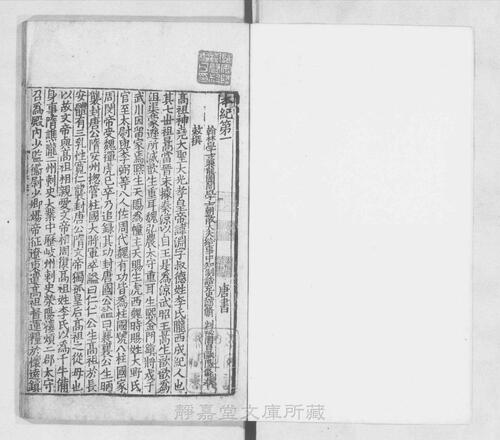 本紀第一
唐書
翰林學士兼龍圖閣學士朝散大夫給事中知制誥充史館脩撰
敕撰
高祖神堯大聖大光孝皇帝諱淵字叔德姓李氏隴西成紀人也
其七世祖暠當晉末據秦涼以自王是為涼武昭王暠生歆歆為
沮渠蒙遜所滅歆生重耳魏弘農太守重耳生熙金門鎮將戍于
武川因留家焉熙生天賜為幢主天賜生虎西魏時賜姓大野氏
官至太尉與李弼等八人佐周代魏有功皆為柱國號八柱國家
周閔帝受魏禪虎已卒乃追錄其功封唐國公謚曰襄襄公生昞
襲封唐公隋安州總管柱國大將軍卒謚曰仁仁公生高祖於長
安體有三乳性寬仁襲封唐公隋文帝獨孤皇后高祖之從母也
以故文帝與高祖相親愛文帝相周復高祖姓李氏以為千牛備
身事隋譙隴二州刺史大業中歷岐州刺史滎陽樓煩二郡太守
召為殿內少監衛尉少卿煬帝征遼東遣高祖督運糧於懷遠鎮
靜嘉堂文庫所藏